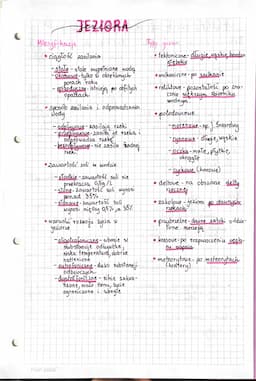 JEZIORA
Klasyfikacja
• ciągłość zasilania
- stałe - stale wypełnione wodą
- okresowe - tylko w określonych
porach roku
- epizodyczne - istnieją po obfitych
opadach
• sposób zasilania i odprowadzania
wody
- odpływowe - zasilają rzeki
- przepływowe - zasila je rzeka i
odprowadza rzeka
- bezodpływowe - nie zasila żadnej
rzeki
• zawartość soli w wodzie
- słodkie - zawartość soli nie
przekracza 0,5g/l
- słone - zawartość soli wynosi
ponad 35%
zawartość soli
wynosi między 0,5% a 35%
• warunki rozwoju życia w
jeziorze
- ubogie w
substancje odżywcze,
niska temperatura, dobrze
natlenione
- eutroficzne - dużo substancji
odżywczych
- dystroficzne - silnie zakwa-
szone, mało tlenu, życie
ograniczone i ubogie
Typ
• tektoniczne - długie, wąskie, bardzo
głębokie
• wulkaniczne - po
• reliktowe - pozostałość po
większym zbiorniku
wodnym
• polodowcowe
- morenowe - np. j. Śniardwy
- długie, wąskie
- oczka - małe, płytkie,
okrągłe
- cyrkowe
• deltowe - na obszarze delty
rzecznej
• zakolowe - jezioro po dawnych
zakolach
• przybrzeżne - dawne zatoki oddzie-
lone mierzeją
• krasowe - po rozpuszczeniu skał
• meteorytowe - po meteorytach
(kratery)